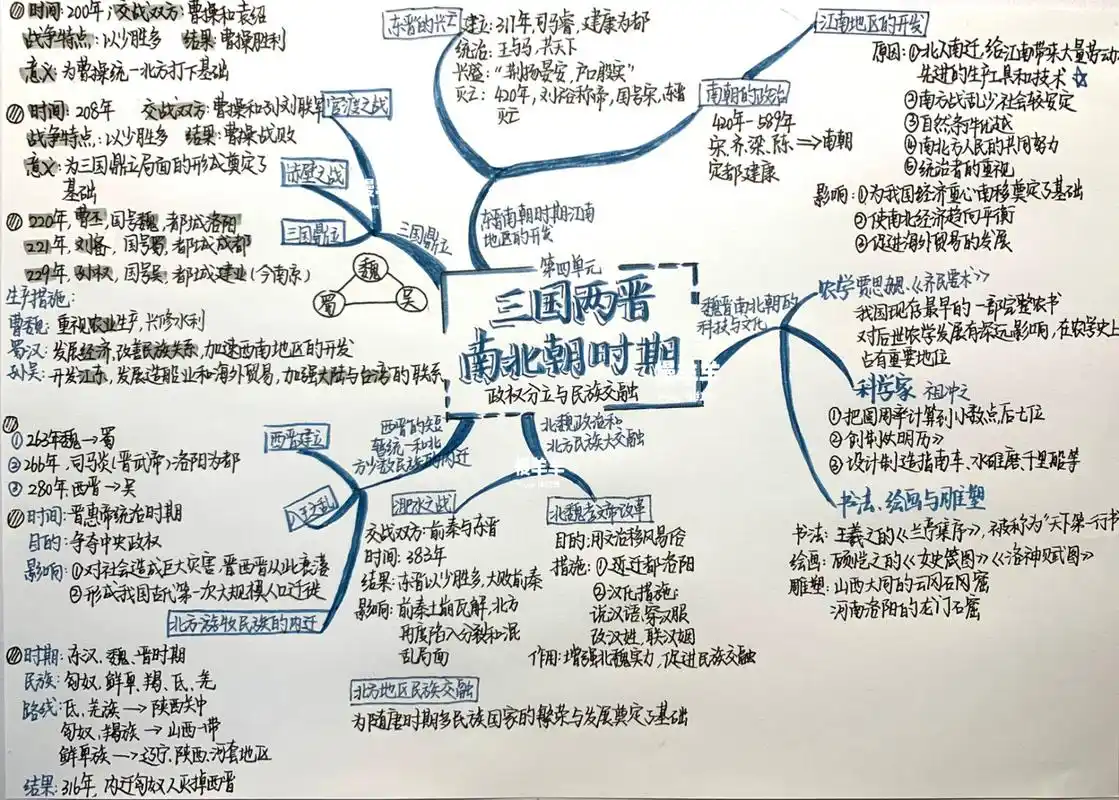 第四单元
三国两晋
南北朝时期
政权分立与民族交融
三国鼎立
官渡之战
时间:200年,交战双方:曹操和袁绍
战争特点:以少胜多 结果:曹操胜利
意义:为曹操统一北方打下基础
赤壁之战
时间:208年 交战双方:曹操和孙刘联军
战争特点:以少胜多 结果:曹操战败
意义:为三国鼎立局面的形成奠定了
基础
三国鼎立
220年,曹丕,国号魏,都城洛阳
221年,刘备,国号蜀,都城成都
229年,孙权,国号吴,都城建业(今南京)
魏
蜀
吴
生产措施:
曹魏:重视农业生产,兴修水利
蜀汉:发展经济,改善民族关系,加速西南地区的开发
孙吴:开发江东,发展造船业和海外贸易,加强大陆与台湾的联系
西晋的短
暂统一和北
方少数民族的内迁
西晋建立
①263年魏→蜀
②266年,司马炎(晋武帝)洛阳为都
③280年,西晋→吴
八王之乱
时间:晋惠帝统治时期
目的:争夺中央政权
影响:①对社会造成巨大灾害,晋西晋从此衰落
②形成我国古代第一次大规模人口迁徙
北方游牧民族的内迁
时期:东汉、魏、晋时期
民族:匈奴,鲜卑,羯、氐、羌
路线:氐,羌族→陕西关中
匈奴,羯族→山西一带
鲜卑族→辽宁、陕西、河套地区
结果:316年,内迁匈奴人灭掉西晋
东晋南朝时期江南
地区的开发
东晋的兴亡
建立:317年,司马睿,建康为都
统治:王与马,共天下
兴盛:“荆扬晏安,户口殷实”
灭亡:420年,刘裕称帝,国号宋,东晋
灭亡
南朝的政治
420年-589年
宋、齐、梁、陈⇒南朝
定都建康
江南地区的开发
原因:①北人南迁,给江南带来大量劳动力
先进的生产工具和技术☆
②南方战乱少社会较安定
③自然条件优越
④南北方人民的共同努力
⑤统治者的重视
影响:①为我国经济重心南移奠定了基础
②使南北经济趋向平衡
③促进海外贸易的发展
魏晋南北朝的
科技与文化
农学 贾思勰、《齐民要术》
我国现存最早的一部完整农书
对后世农学发展有深远影响,在农学史上
占有重要地位
科学家 祖冲之
①把圆周率计算到小数点后七位
②创制《大明历》
③设计制造指南车、水碓磨、千里船等
书法、绘画与雕塑
书法:王羲之的《兰亭集序》,被称为“天下第一行书
绘画:顾恺之的《女史箴图》《洛神赋图》
雕塑:山西大同的云冈石窟
河南洛阳的龙门石窟
北魏政治和
北方民族大交融
淝水之战
交战双方:前秦与东晋
时间:383年
结果:东晋以少胜多,大败前秦
影响:前秦土崩瓦解,北方
再度陷入分裂和混
乱局面
北魏孝文帝改革
目的:用文治移风易俗
措施:①迁都洛阳
②汉化措施:
说汉语,穿汉服
改汉姓,联汉姻
作用:增强北魏实力,促进民族交融
北方地区民族交融
为隋唐时期多民族国家的繁荣与发展奠定了基础